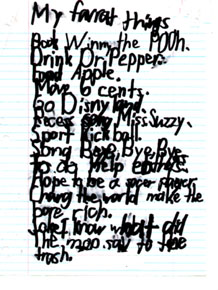 My favrat things
Book Winny the Pooh.
Drink Dr. Pepper.
Food Apple.
Move 6 cents.
Go Disny land.
Reces song Miss Suzzy.
Sport kick ball.
Song Bye, Bye, Bye
To do help
Hope to be a
Chang the world make the
pore rich.
Joke I know what did
The moo say to the
trash.